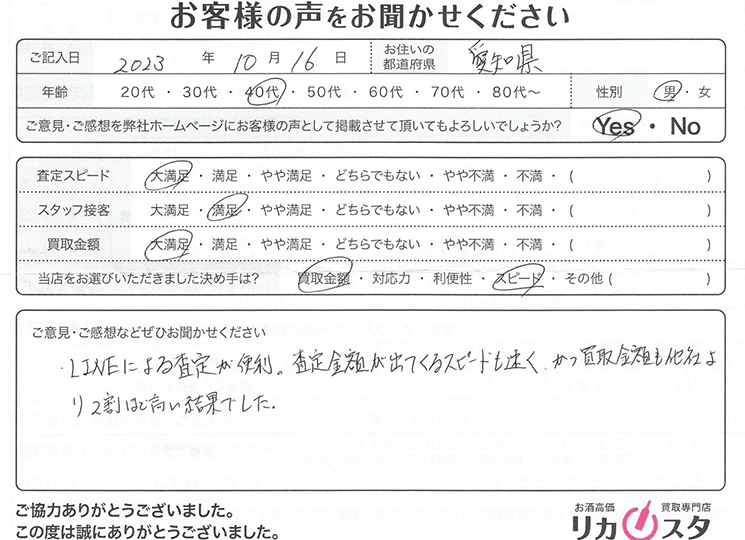 お客様の声をお聞かせください
ご記入日 2023 年 10 月 16 日 お住いの都道府県 愛知県
年齢 20代 ・ 30代 ・ 40代 ・ 50代 ・ 60代 ・ 70代 ・ 80代～ 性別 男 ・ 女
ご意見・ご感想を弊社ホームページにお客様の声として掲載させて頂いてもよろしいでしょうか? Yes ・ No
査定スピード 大満足 ・ 満足 ・ やや満足 ・ どちらでもない ・ やや不満 ・ 不満 ・ ( )
スタッフ接客 大満足 ・ 満足 ・ やや満足 ・ どちらでもない ・ やや不満 ・ 不満 ・ ( )
買取金額 大満足 ・ 満足 ・ やや満足 ・ どちらでもない ・ やや不満 ・ 不満 ・ ( )
当店をお選びいただきました決め手は? 買取金額 ・ 対応力 ・ 利便性 ・ スピード ・ その他 ( )
ご意見・ご感想などぜひお聞かせください
・LINEによる査定が便利。査定金額が出てくるスピードも速く、かつ買取金額も他社よ
り2割ほど高い結果でした。
ご協力ありがとうございました。
この度は誠にありがとうございます。
お酒高価 買取専門店
リカスタ